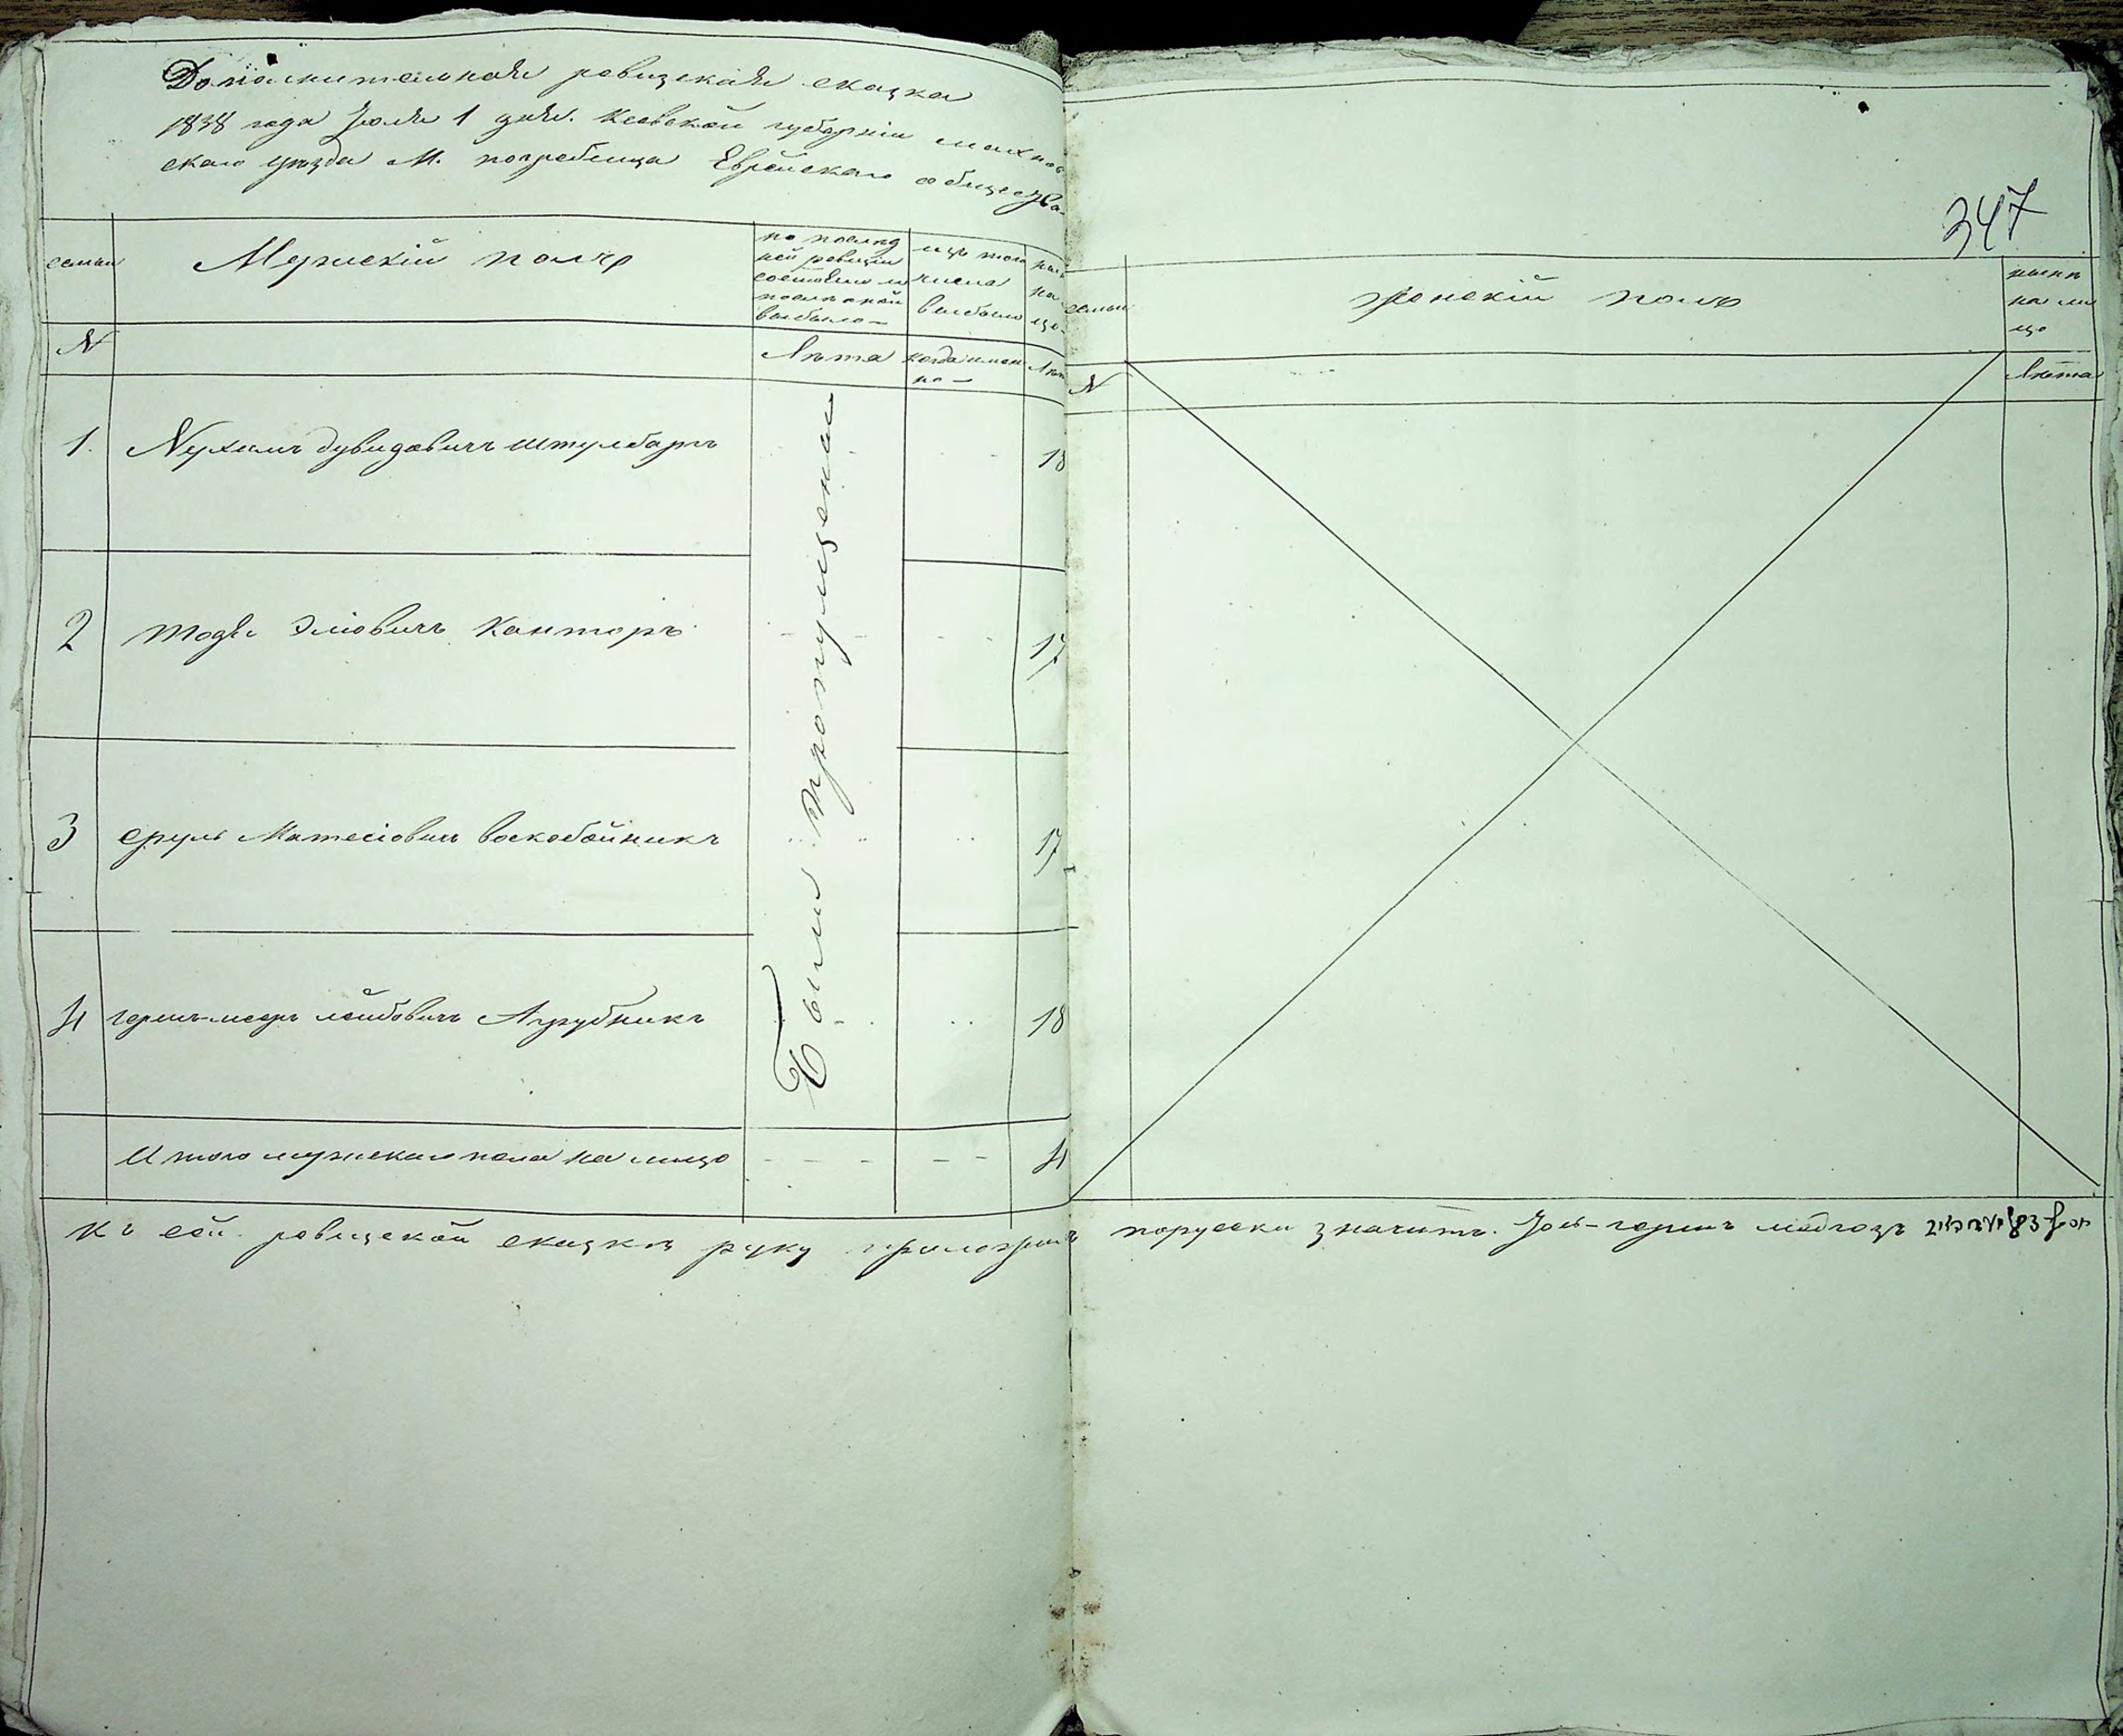 Дополнительная ревизская сказка
1838 года Июля 1 дня. Киевской губернии Махнов
скаго уезда М. погребища Еврейскаго общества
347
семьи
Мужескій полъ
по послед
ней ревизіи
состояло и
после оной
выбыло
изъ того
числа
выбыло
ныне
на
ли
цо
№
Лета
когда имен
но
Лета
1.
Нухимъ дувидовичъ штулбергъ
18
2
тодя Эліовичъ Канторъ
17
3
сруль Матесіовичъ воскобойникъ
17
4
гершъ-мееръ лейбовичъ
18
Были пропущены
Итого мужескаго пола на лицо
4
семьи
женскій полъ
ныне
на ли
цо
№
Лета
Къ сей ревизской сказке руку приложилъ порусски значитъ. Іось-гершъ